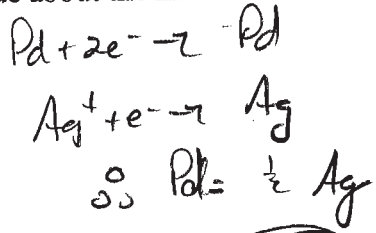 Pd + 2e⁻ → Pd
Ag⁺ + e⁻ → Ag
∴ Pd = ½ Ag